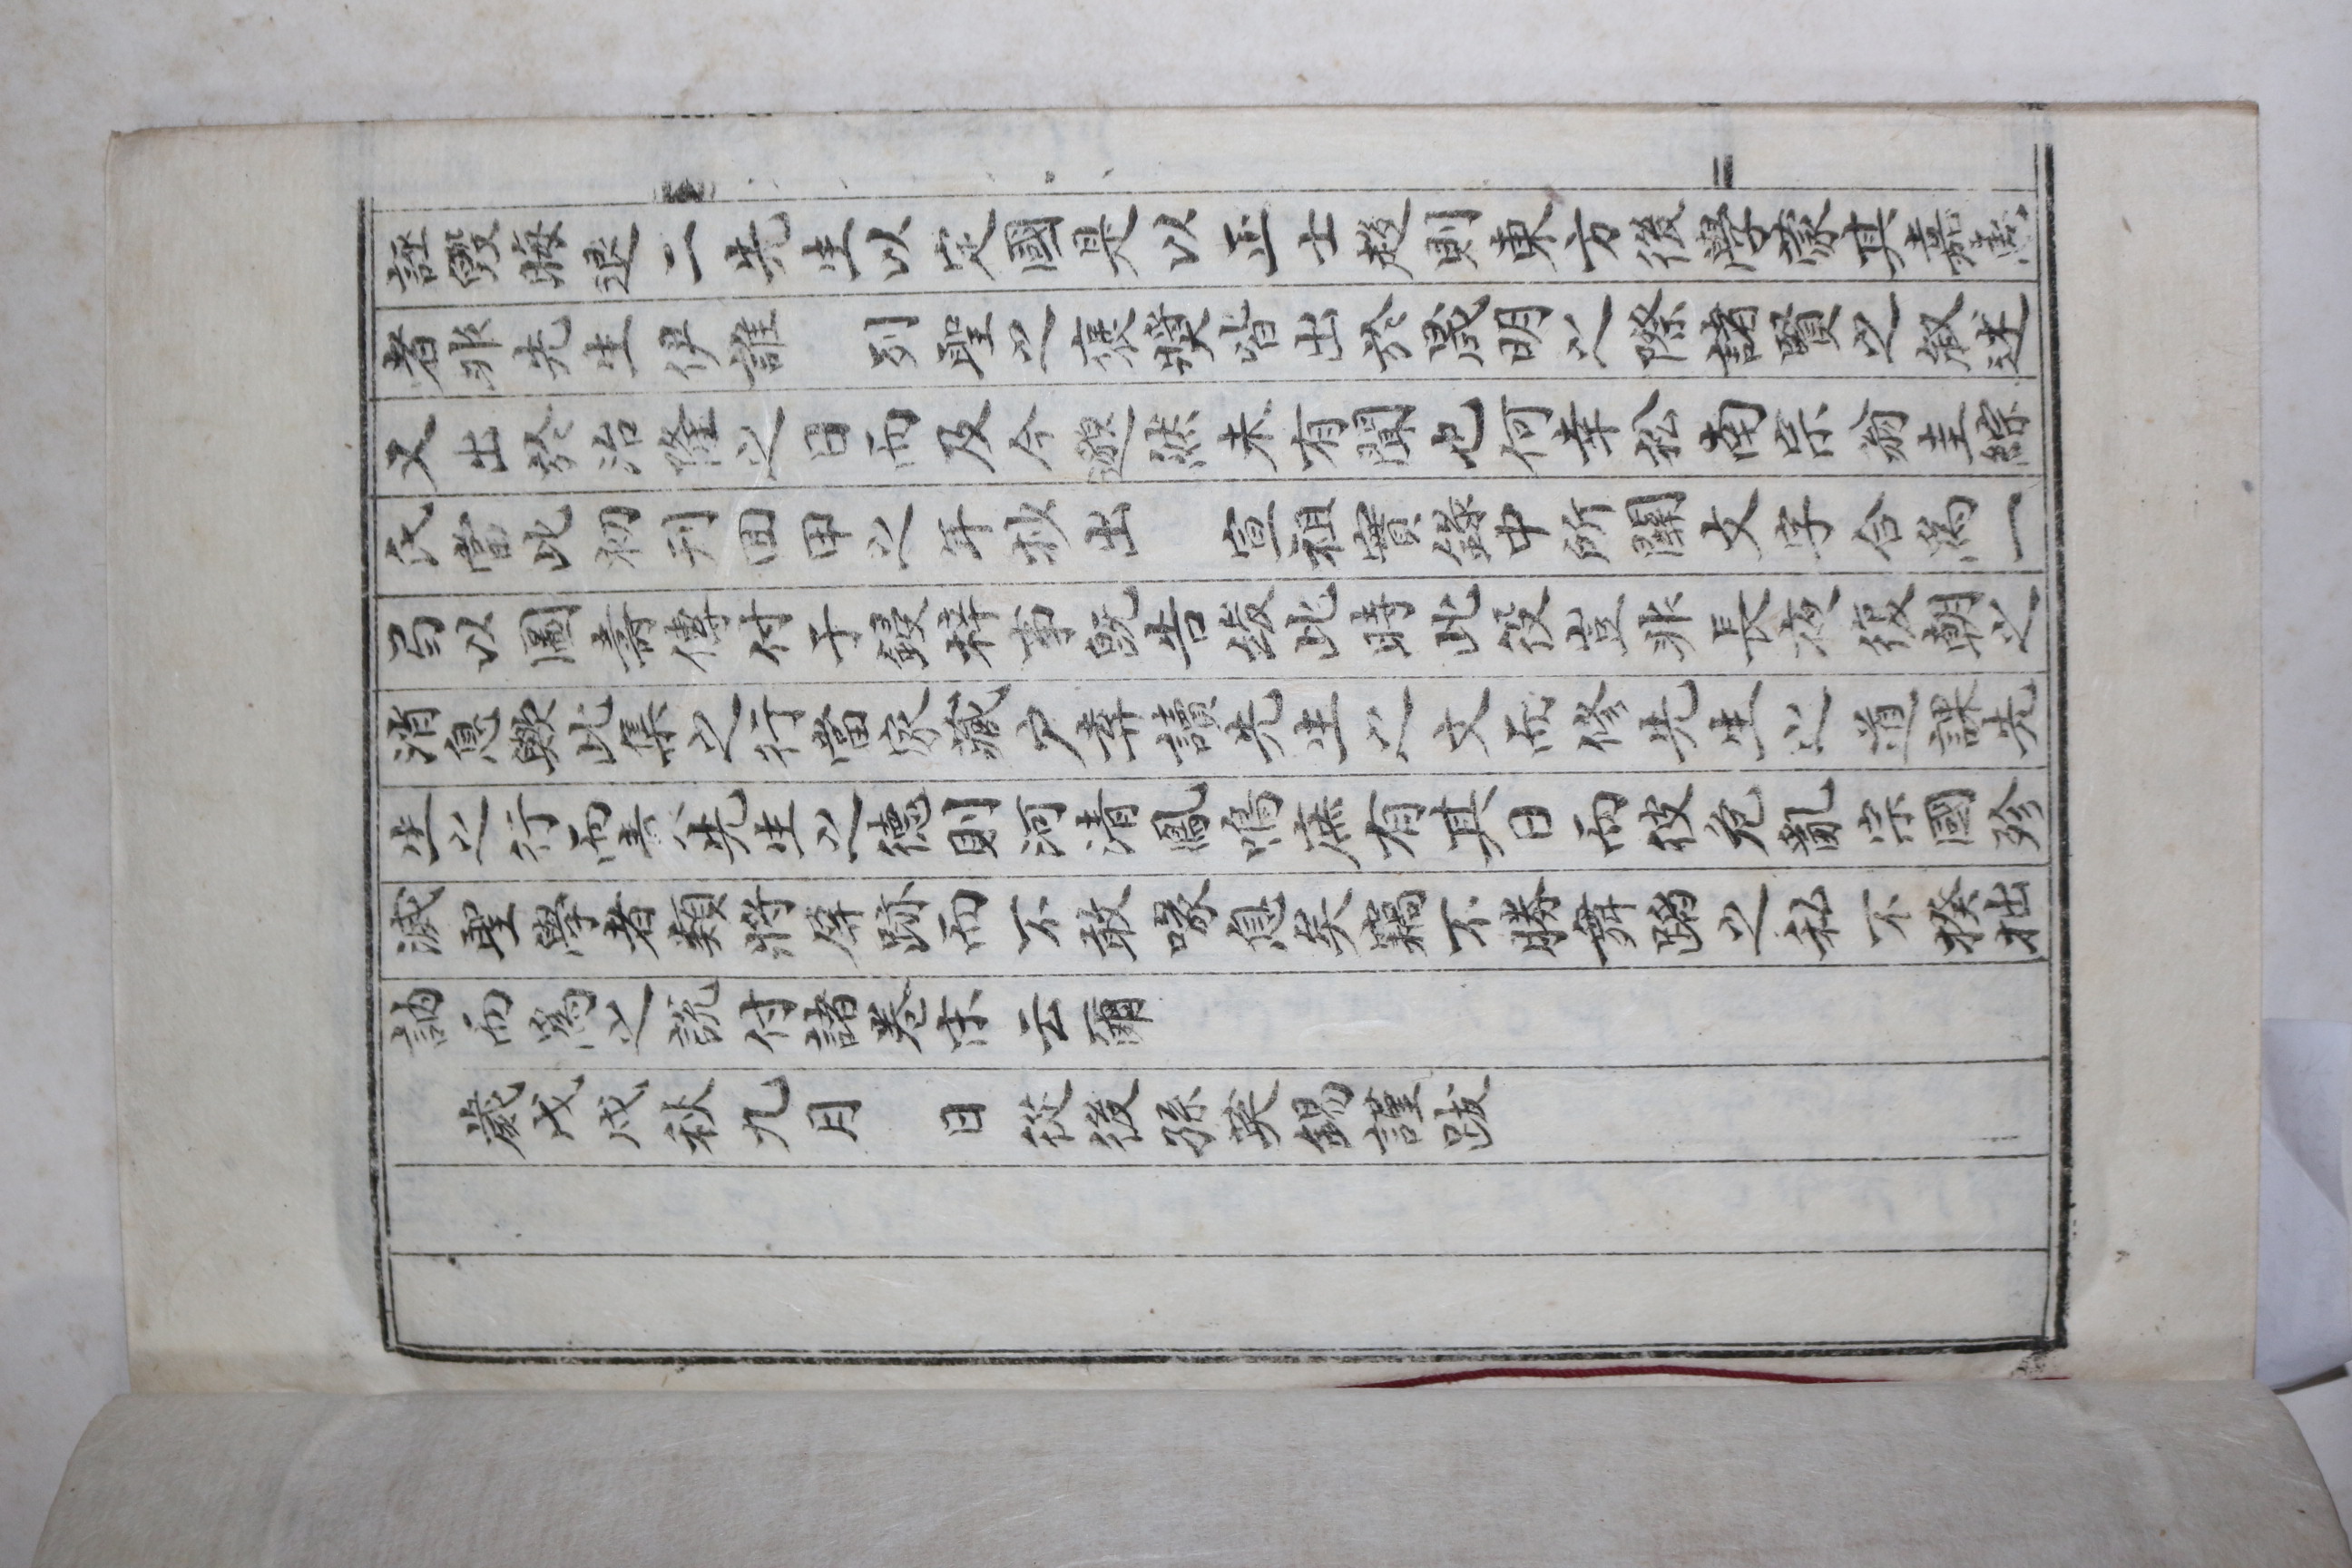 誣毁晦退二先生以定國是以正士趍則東方後學蒙其嘉惠
者非先生伊誰 列聖之褒奬皆出於晟明之際諸賢之叙述
又出於治隆之日而及今邈然未有聞也何幸松南宗翁圭綜
氏當此初刊回甲之年抄出 宣祖實錄中所關文字合爲一
弓以圖壽傳付于鋟梓事旣告竣此時此役豈非長夜復朝之
消息歟此集之行當家藏戶弆讀先生之文而修先生之道課先
生之行而 先生之德則河清鳳鳴庶有其日而彼危亂宗國殄
滅聖學者類將屏跡而不敢喙息矣竊不勝舞蹈之私不揆拙
訥而爲之說付諸卷末云爾
歲戊戌秋九月 日從後孫英錫謹跋
二